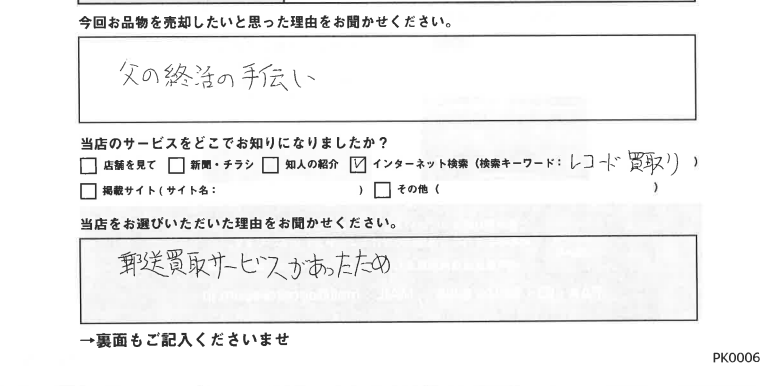 今回お品物を売却したいと思った理由をお聞かせください。
父の終活の手伝い
当店のサービスをどこでお知りになりましたか?
□ 店舗を見て □ 新聞・チラシ □ 知人の紹介 ☑ インターネット検索（検索キーワード： レコード買取り ）
□ 掲載サイト（サイト名： ） □ その他（ ）
当店をお選びいただいた理由をお聞かせください。
郵送買取サービスがあったため
→裏面もご記入くださいませ
PK0006